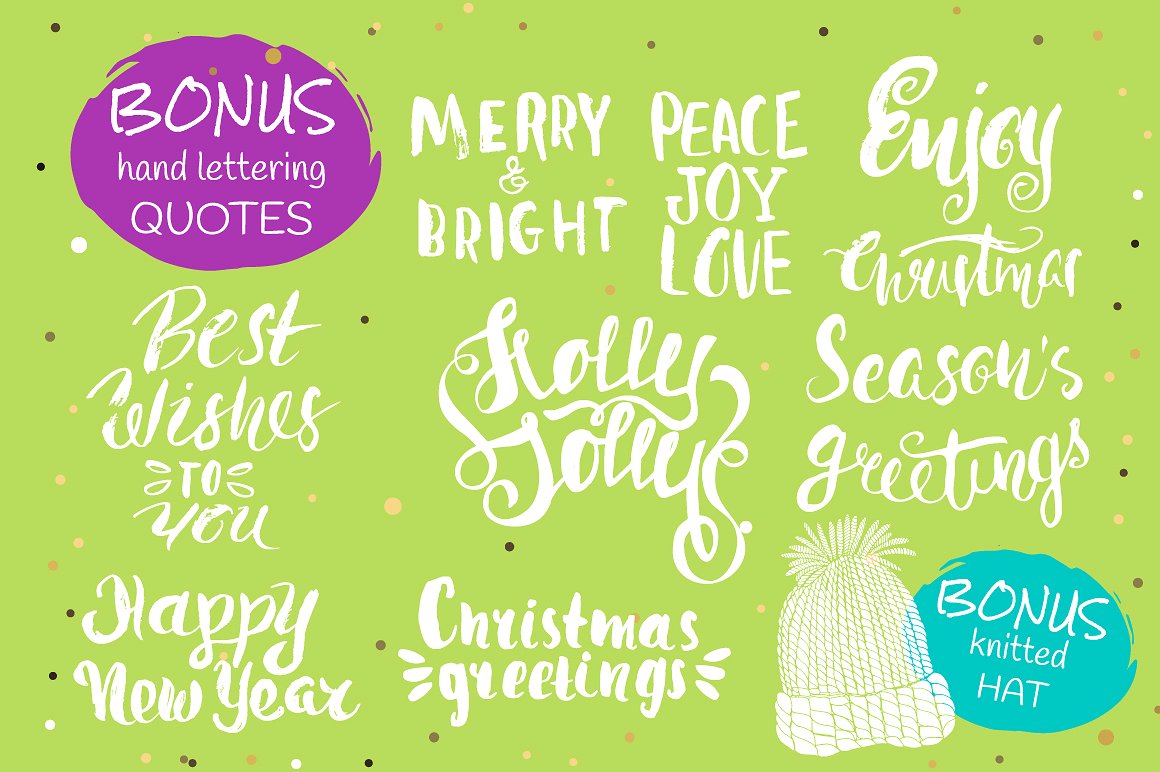 BONUS
hand lettering
QUOTES
MERRY
&
BRIGHT
PEACE
JOY
LOVE
Enjoy
Christmas
Best
Wishes
TO
YOU
Holly
Jolly
Season's
greetings
Happy
New Year
Christmas
greetings
BONUS
knitted
HAT